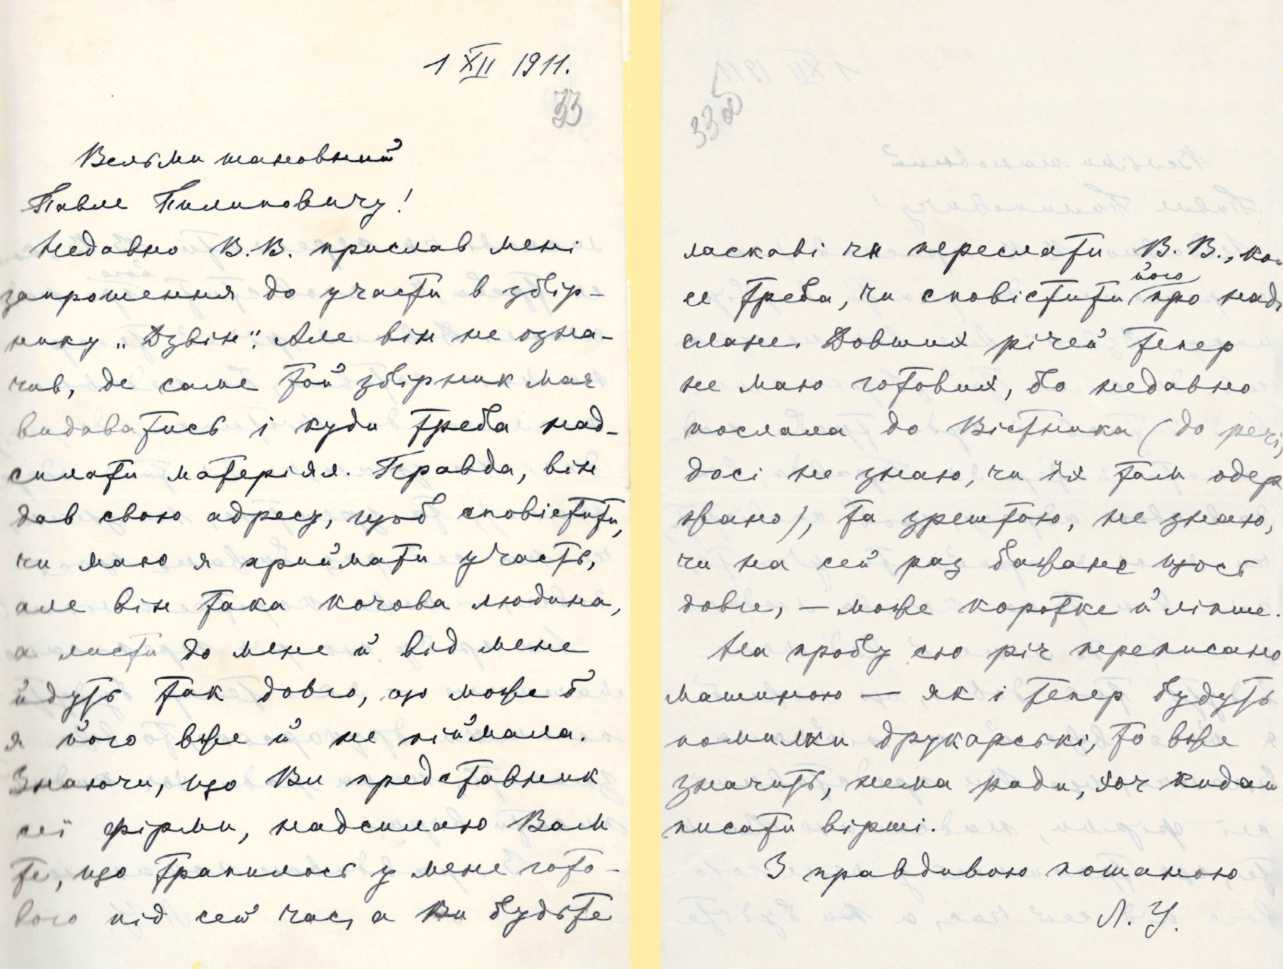 1 XII 1911.
33
Вельми шановний
Павле Пилиповичу!
Недавно В.В. прислав мені
запрошення до участи в збір-
нику „Дзвін". Але він не озна-
чив, де саме той збірник має
видаватись і куди треба над-
силати матеріял. Правда, він
дав свою адресу, щоб сповістити,
чи маю я приймати участь,
але він така кочова людина,
а листи до мене й від мене
йдуть так довго, що може б
я його вже й не піймала.
Знаючи, що Ви представник
сеї фірми, надсилаю Вам
те, що трапилось у мене гото-
вого під сей час, а Ви будьте
33об
ласкаві чи переслати В.В., коли
се треба, чи сповістити його про наді-
слане. Довших річей тепер
не маю готових, бо недавно
послала до Вістника (до речі,
досі не знаю, чи їх там одер
жано), та зрештою, не знаю,
чи на сей раз бажане щось
довге, — може коротке й ліпше.
На пробу сю річ переписано
машиною — як і тепер будуть
помилки друкарські, то вже
значить, нема ради, хоч кидай
писати вірші.
З правдивою пошаною
Л. У.